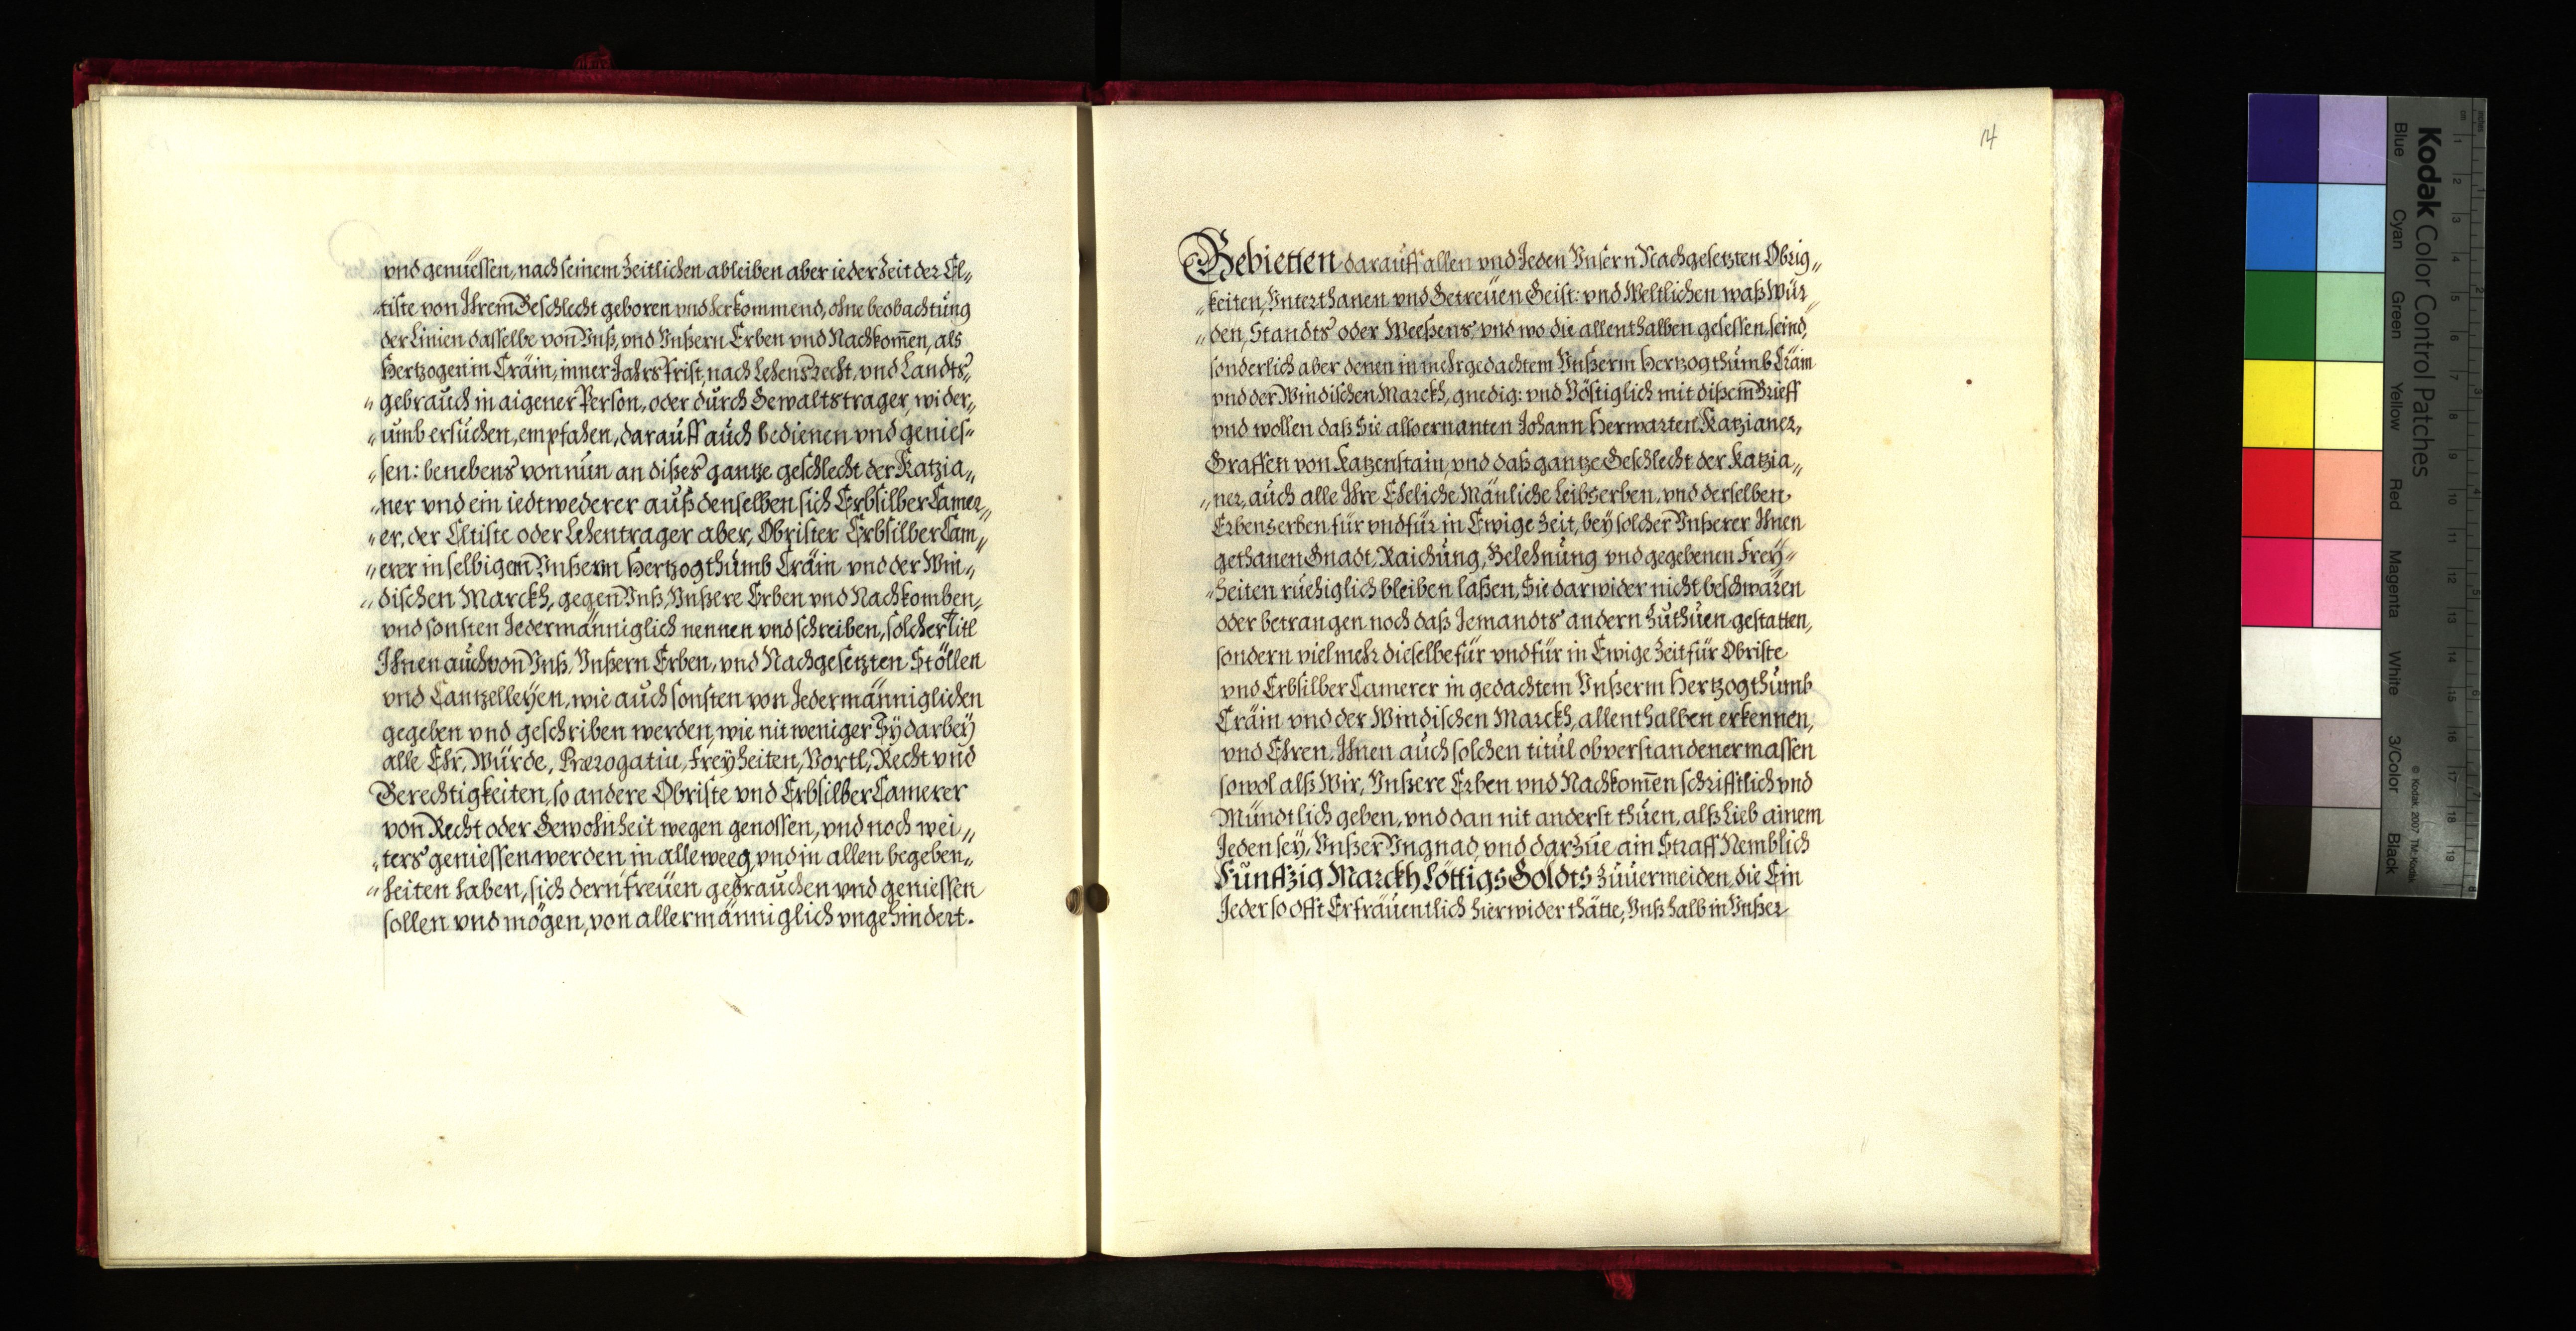 vnd genüessen, nach seinem Zeitlichen ableiben aber ieder Zeit der El„
„tiste von Ihrem Geschlecht geboren vnd herkommend, ohne beobachtung
der Linien dasselbe von Vnß, vnd Vnßern Erben vnd Nachkom̄en, als
Hertzogen in Cräin, inner Jahrs Frist, nach Lehens Recht, vnd Landts„
„gebrauch in aigener Person, oder durch Gewaltstrager, wider„
„umb ersuchen, empfahen, darauff auch bedienen vnd genies„
„sen: benebens von nun an dißes gantze geschlecht der Katzia„
„ner vnd ein iedtwederer auß denselben sich Erbsilber Camer„
„er, der Eltiste oder Lehentrager aber, Obrister Erbsilber Cam„
„erer in selbigem Vnßerm Hertzogthumb Cräin vnd der Win„
„dischen Marckh, gegen Vnß, Vnßere Erben vnd Nachkomben,
vnd sonsten Jedermänniglich nennen vnd schreiben, solcher Titl
Ihnen auch von Vnß, Vnßern Erben, vnd Nachgesetzten Stöllen
vnd Cantzelleyen, wie auch sonsten von Jedermännigliden
gegeben vnd geschriben werden, wie nit weniger Sy darbey
alle Ehr, Würde, Prærogatiu, Freyheiten, Vortl, Recht vnd
Gerechtigkeiten, so andere Obriste vnd Erbsilber Camerer
von Recht oder Gewohnheit wegen genossen, vnd noch wei„
„ters geniessen werden, in alleweeg, vnd in allen begeben„
„heiten haben, sich dern freüen gebrauchen vnd geniessen
sollen vnd mögen, von allermänniglich vngehindert.
14
Gebietten darauff allen vnd Jeden Vnsern Nachgesetzten Obrig„
„keiten, Vnterthanen vnd Getreüen Geist: vnd Weltlichen waß Wür„
„den, Standts oder Weeßens, vnd wo die allenthalben gesessen seind,
sonderlich aber denen in mehrgedachtem Vnßerm Hertzogthumb Cräin
vnd der Windischen Marckh, gnedig: vnd Vöstiglich mit dißem Brieff
vnd wollen daß Sie also ernanten Johann Herwarten Katzianer,
Graffen von Katzenstain, vnd daß gantze Geschlecht der Katzia„
„ner, auch alle Ihre Eheliche Mänliche Leibserben, vnd derselben
Erbenserben für vnd für in Ewige Zeit, bey solcher Vnßerer Ihnen
gethanen Gnadt, Raichung, Belehnung vnd gegebenen Frey„
„heiten rüehiglich bleiben laßen, Sie darwider nicht beschwären
oder betrangen noch daß Jemandts andern Zuthuen gestatten,
sondern viel mehr dieselbe für vnd für in Ewige Zeit für Obriste
vnd Erbsilber Camerer in gedachtem Vnßerm Hertzogthumb
Cräin vnd der Windischen Marckh, allenthalben erkennen,
vnd Ehren, Ihnen auch solchen titul obverstandenermassen
sowol alß Wir, Vnßere Erben vnd Nachkom̄en schrifftlich vnd
Mündtlich geben, vnd dan nit anderst thuen, alß Lieb ainem
Jeden sey, Vnßer Vngnad, vnd darzue ain Straff Nemblich
Fünffzig Marckh Löttigs Goldts Zuuermeiden, die Ein
Jeder so offt Er fräuentlich hierwider thätte, Vnß halb in Vnßer
Kodak Color Control Patches
Blue
Cyan
Green
Yellow
Red
Magenta
White
3/Color
Black
© Kodak, 2007 TM: Kodak